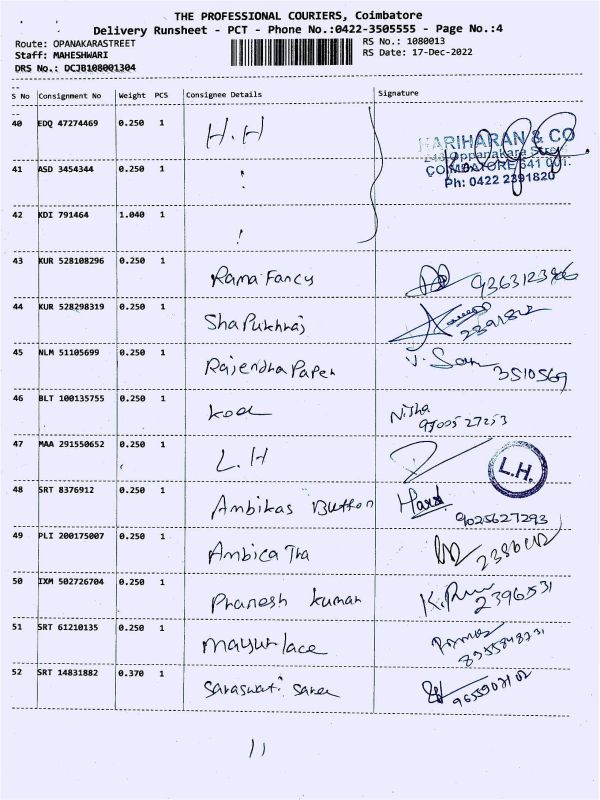 THE PROFESSIONAL COURIERS, Coimbatore
Delivery Runsheet - PCT - Phone No.:0422-3505555 - Page No.:4
Route: OPANAKARASTREET
Staff: MAHESHWARI
DRS No.: DCJB108001304
RS No.: 1080013
RS Date: 17-Dec-2022
S No Consignment No Weight PCS Consignee Details Signature
40 EDQ 47274469 0.250 1 H.H
HARIHARAN & CO
COIMBATORE 641 001.
Ph: 0422 2391820
41 ASD 3454344 0.250 1
42 KDI 791464 1.040 1
43 KUR 528108296 0.250 1 Rama Fancy
44 KUR 528298319 0.250 1
45 NLM 51105699 0.250 1 Rajendra Paper 3510569
46 BLT 100135755 0.250 1 Nisha
47 MAA 291550652 0.250 1 L.H L.H.
48 SRT 8376912 0.250 1 Ambikas Button 9025627293
49 PLI 200175007 0.250 1 Ambica Tha
50 IXM 502726704 0.250 1 Pranesh kumar 2396531
51 SRT 61210135 0.250 1 Mayur lace
52 SRT 14831882 0.370 1 Saraswati Saree
11